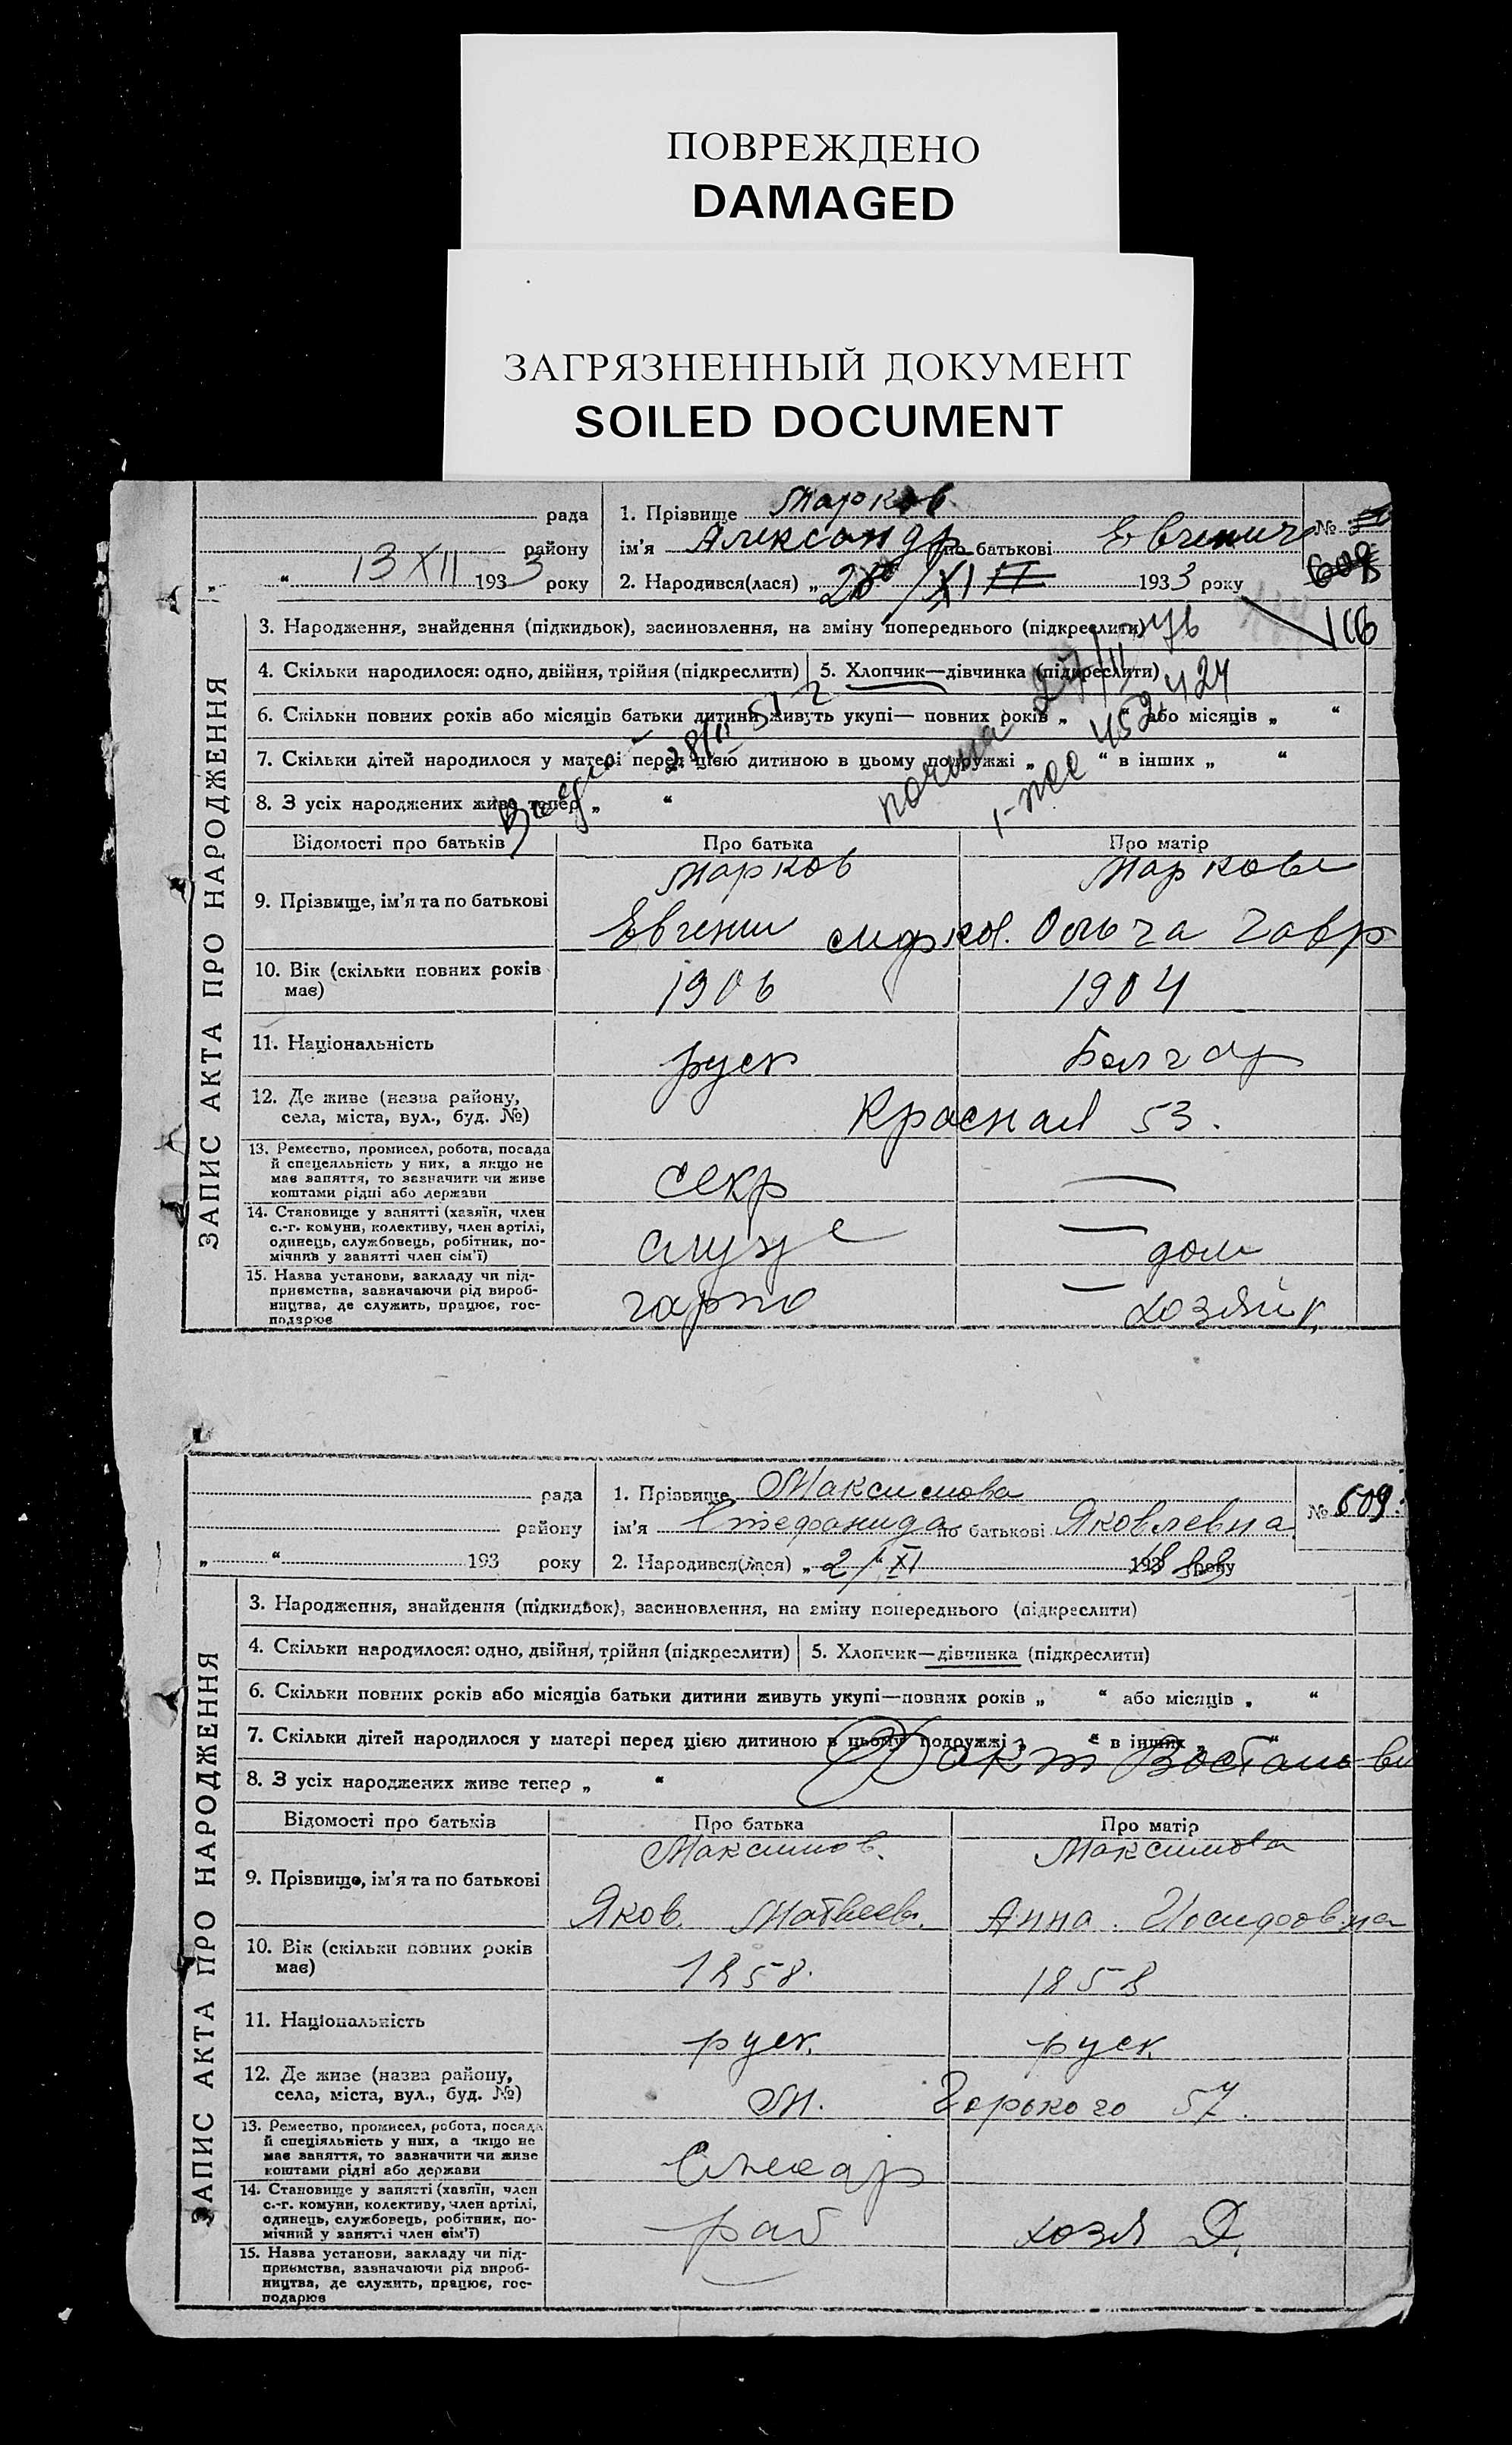 ПОВРЕЖДЕНО
DAMAGED
ЗАГРЯЗНЕННЫЙ ДОКУМЕНТ
SOILED DOCUMENT
ЗАПИС АКТА ПРО НАРОДЖЕННЯ
рада
району
„ “ 13 XII 1933 року
1. Прізвище Марков
ім’я Александр по батькові Евгенич
2. Народився(лася) „ 28/XI 1933 року
№
608
116
3. Народження, знайдення (підкидьок), засиновлення, на зміну попереднього (підкреслити)
4. Скільки народилося: одно, двійня, трійня (підкреслити)
5. Хлопчик—дівчинка (підкреслити)
6. Скільки повних років або місяців батьки дитини живуть укупі— повних років „ “ або місяців „ “
7. Скільки дітей народилося у матері перед цією дитиною в цьому подружжі „ “ в інших „ “
8. З усіх народжених живе тепер „ “
28/II 51
27/II-76
452424
Відомості про батьків
Про батька
Про матір
9. Прізвище, ім’я та по батькові
Марков
Маркова
Евгени
Ольга Гавр
10. Вік (скільки повних років має)
1906
1904
11. Національність
руск
Болгар
12. Де живе (назва району, села, міста, вул., буд. №)
Красная 53.
13. Ремество, промисел, робота, посада й спецеяльність у них, а якщо не має заняття, то зазначити чи живе коштами рідні або держави
секр
14. Становище у занятті (хазяїн, член с.-г. комуни, колективу, член артілі, одинець, службовець, робітник, помічний у занятті член сім’ї)
служ
дом
15. Назва установи, закладу чи підприємства, зазначаючи рід виробництва, де служить, працює, господарює
хозяйк
ЗАПИС АКТА ПРО НАРОДЖЕННЯ
рада
району
„ “ 193 року
1. Прізвище Максимова
ім’я Стефанида по батькові Яковлевна
2. Народився(лася) „ 21 “ XI
року
№ 609
3. Народження, знайдення (підкидьок), засиновлення, на зміну попереднього (підкреслити)
4. Скільки народилося: одно, двійня, трійня (підкреслити)
5. Хлопчик—дівчинка (підкреслити)
6. Скільки повних років або місяців батьки дитини живуть укупі—повних років „ “ або місяців „ “
7. Скільки дітей народилося у матері перед цією дитиною в цьому подружжі „ “ в інших „ “
8. З усіх народжених живе тепер „ “
Востанов
Відомості про батьків
Про батька
Про матір
9. Прізвище, ім’я та по батькові
Максимов.
Максимова
Яков. Матвеев.
Анна. Исидоровна
10. Вік (скільки повних років має)
1858.
1858
11. Національність
руск.
руск.
12. Де живе (назва району, села, міста, вул., буд. №)
М. Горького 57.
13. Ремество, промисел, робота, посада й спеціяльність у них, а якщо не має заняття, то зазначити чи живе коштами рідні або держави
Слесар
14. Становище у занятті (хазяїн, член с.-г. комуни, колективу, член артілі, одинець, службовець, робітник, помічний у занятті член сім’ї)
раб
хозя Д.
15. Назва установи, закладу чи підприємства, зазначаючи рід виробництва, де служить, працює, господарює